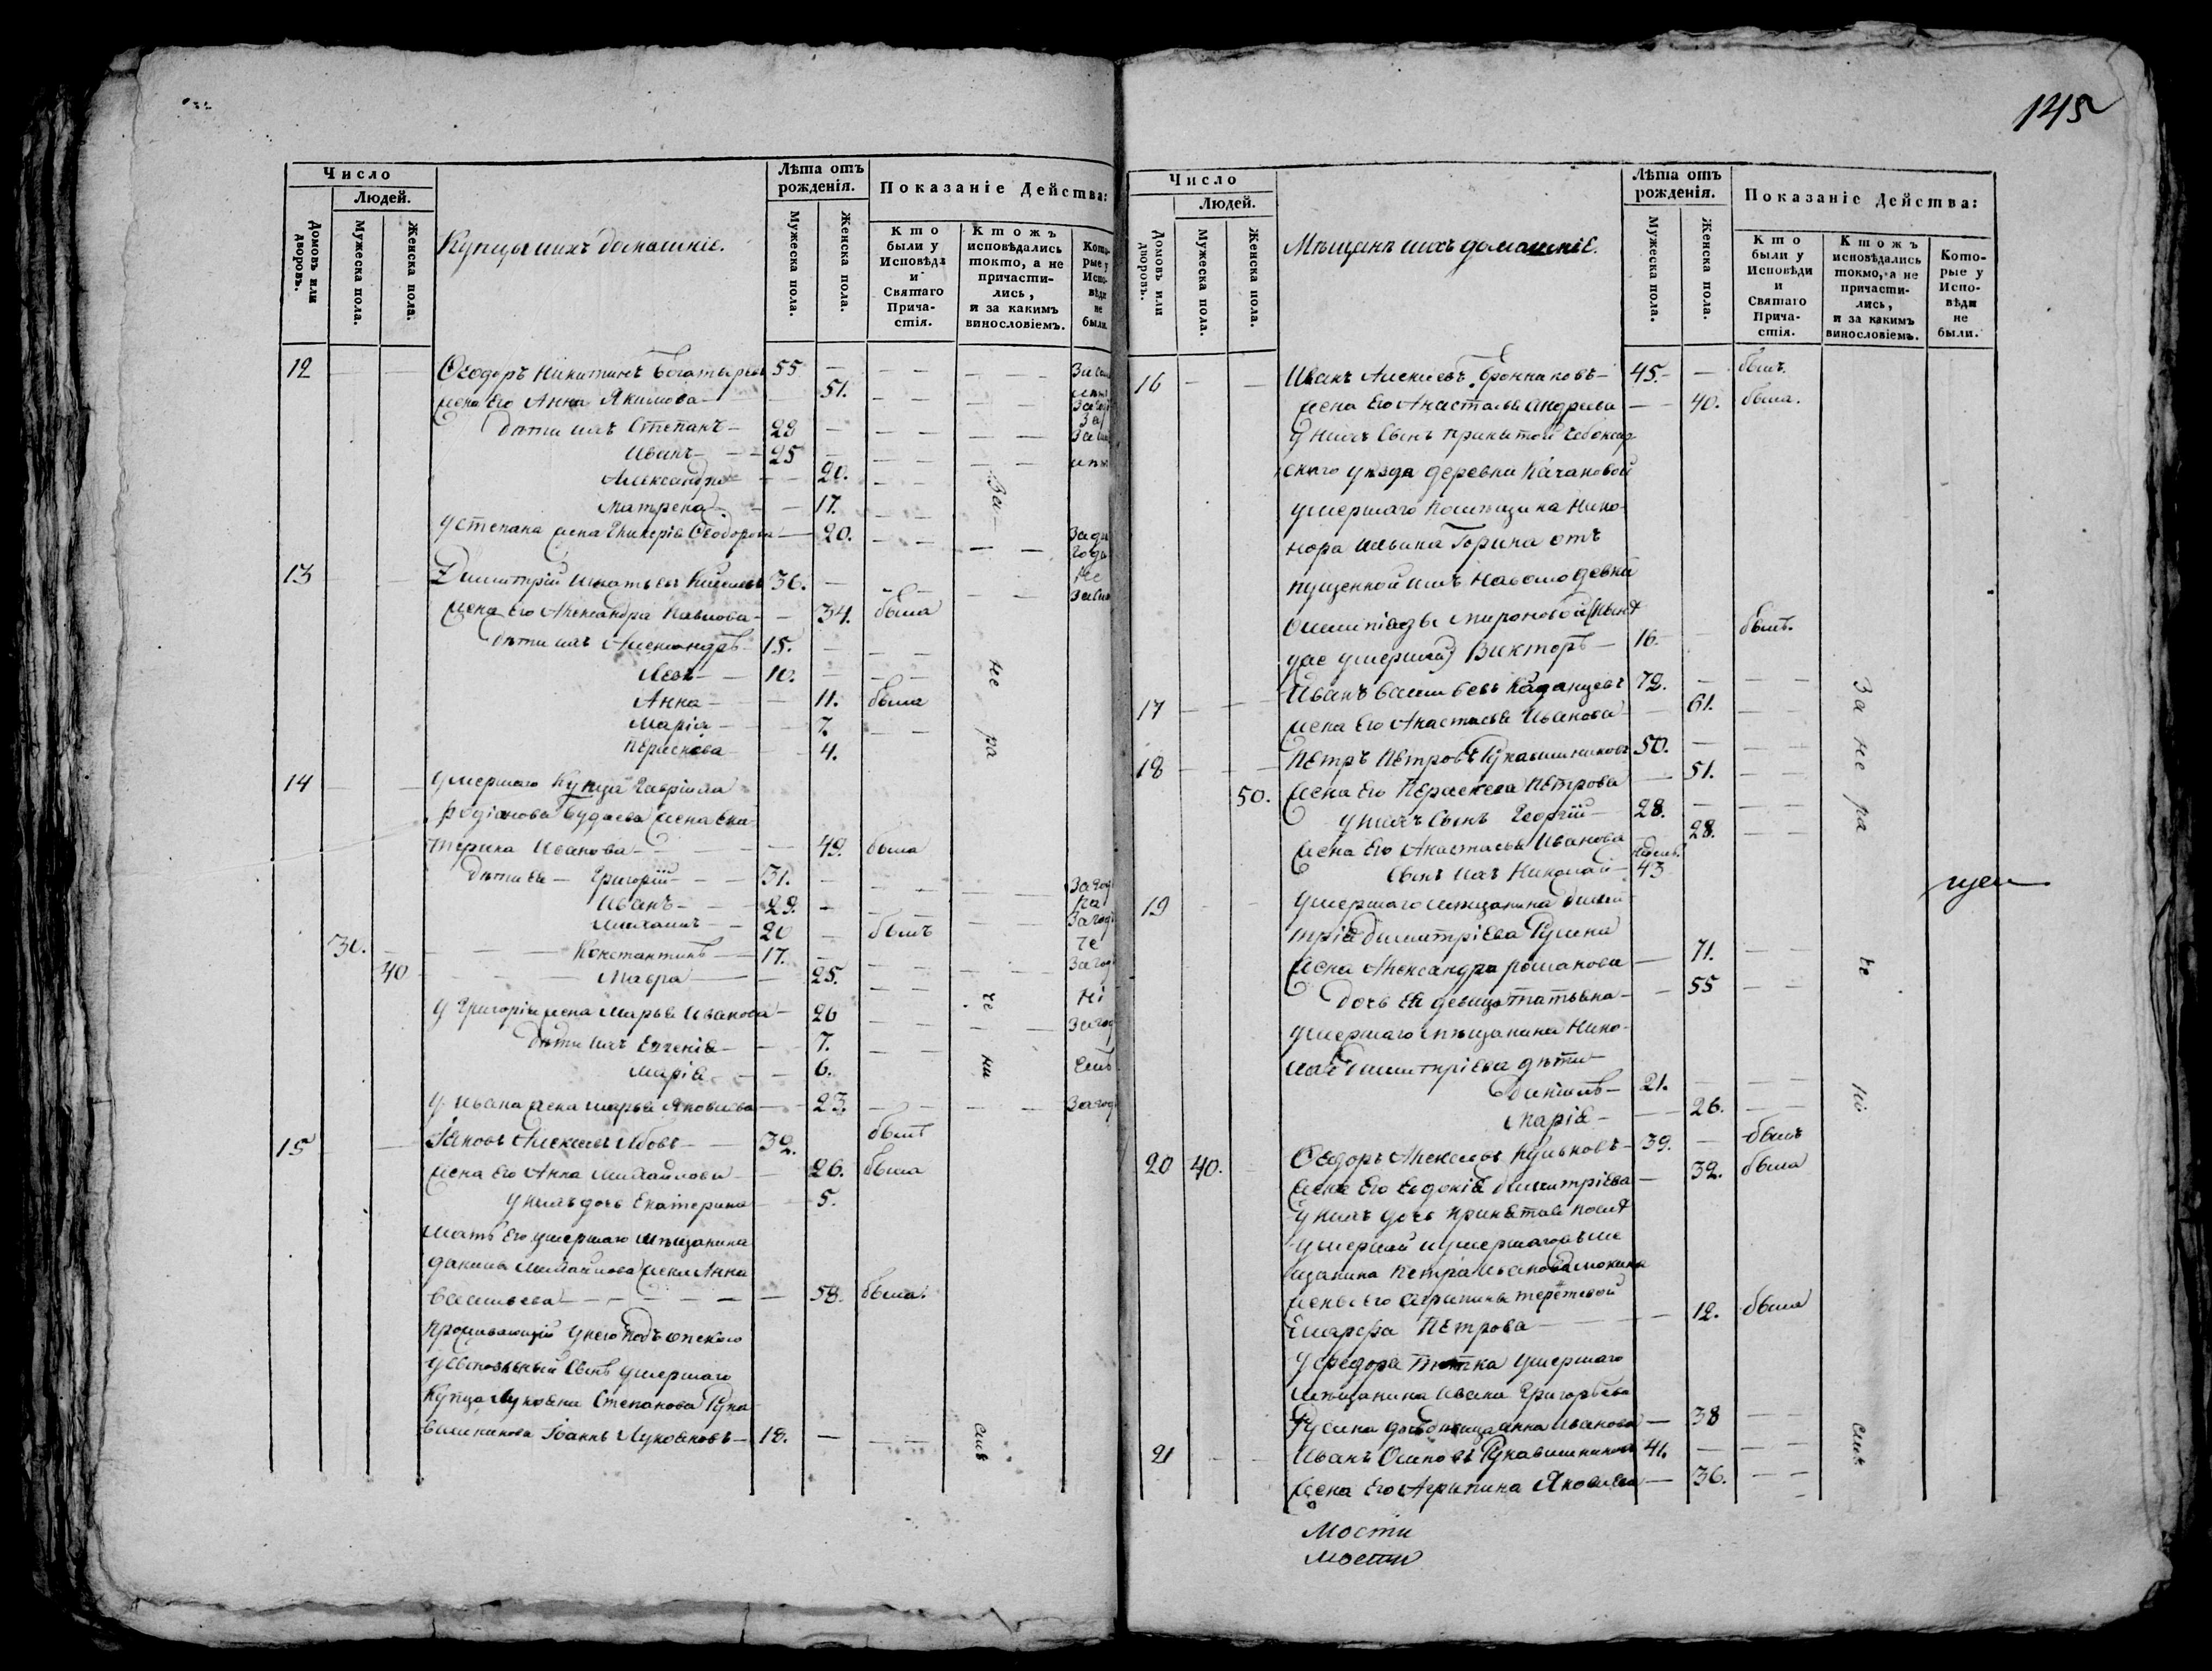 145
Число
Людей.
Домовъ или дворовъ.
Мужеска пола.
Женска пола.
Купцы и ихъ домашніе.
Лѣта отъ рожденія.
Мужеска пола.
Женска пола.
Показаніе Действа:
Кто были у Исповѣди и Святаго Прича-стія.
Ктожъ исповѣдались токмо, а не причасти-лись, и за какимъ винословіемъ.
Кото-рые у Испо-вѣди не были.
12 Ѳеодоръ Никитинъ Богатыревъ 55
жена его Анна Якимова 51.
дѣти ихъ Степанъ 29
Иванъ 25
Александра 20.
Матрена 17.
у Степана жена Гликерія Ѳеодорова 20.
13 Димитрій Игнатьевъ 36.
жена его Александра Павлова 34. была
дѣти ихъ Александръ 15.
Левъ 10.
Анна 11. была
Марія 7.
Периснева 4.
14 умершаго купца Гавріила
Родіонова Будаева жена Ека-
терина Иванова 49. была
дѣти ея Григорій 31.
Иванъ 29.
Михаилъ 20 былъ
30. Константинъ 17.
40 Мавра 25.
у Григорія жена Марья Иванова 26
дѣти ихъ Евгенія 7.
Марія 6.
у Ивана жена Марья Яковлева 23.
15 Іаковъ Алексеевъ 32. былъ
жена его Анна Михайлова 26. была
у нихъ дочь Екатерина 5.
мать его умершаго мѣщанина
Данилы Михайлова жена Анна
Васильева 58. была.
Проживающій у него подъ опекою
сынъ умершаго
купца Лукояна Степанова Рука-
вишникова Іоаннъ Лукояновъ 18.
За не ра че ни емъ
Число
Людей.
Домовъ или дворовъ.
Мужеска пола.
Женска пола.
Мѣщанъ и ихъ домашніе.
Лѣта отъ рожденія.
Мужеска пола.
Женска пола.
Показаніе Действа:
Кто были у Исповѣди и Святаго Прича-стія.
Ктожъ исповѣдались токмо, а не причасти-лись, и за какимъ винословіемъ.
Кото-рые у Испо-вѣди не были.
16 Иванъ Алексеевъ Бронниковъ 45. былъ
жена его Анастасья Андреева 40. была.
у нихъ сынъ принятой Чебоксар-
скаго уѣзда деревни Качановой
умершаго помѣщика Нико-
нора Ильина Горина от-
пущенной имъ на волю девки
Олимпіады Мироновой (нынѣ
уже умершей) Викторъ 16. былъ.
17 Иванъ Васильевъ Каданцевъ 72.
жена его Анастасья Иванова 61.
18 Петръ Петровъ Рукавишниковъ 50.
50. жена его Перасковья Петрова 51.
у нихъ сынъ Георгій 28.
жена его Анастасья Иванова 28.
сынъ ихъ Николай недель 43
19 умершаго мѣщанина Дими-
трія Димитріева Русина
жена Александра Романова 71.
дочь ея девица Татьяна 55
умершаго мѣщанина Нико-
лая Димитріева дѣти
Даніилъ 21.
Марія 26.
20 40. Ѳеодоръ Алексеевъ Кульковъ 39. былъ
жена его Евдокія Димитріева 32. была
у нихъ дочь принятая послѣ
умершей и умершаго мѣ-
щанина Петра Иванова
жены его Агрипины Терентевой
Марфа Петрова 12. была
у Федора тетка умершаго
мѣщанина Ивана Григорьева
Русина дочь девица Анна Иванова 38
21 Иванъ Осиповъ Рукавишниковъ 41.
жена его Агрипина Яковлева 36.
За не ра че ні емъ
Мости
Мости